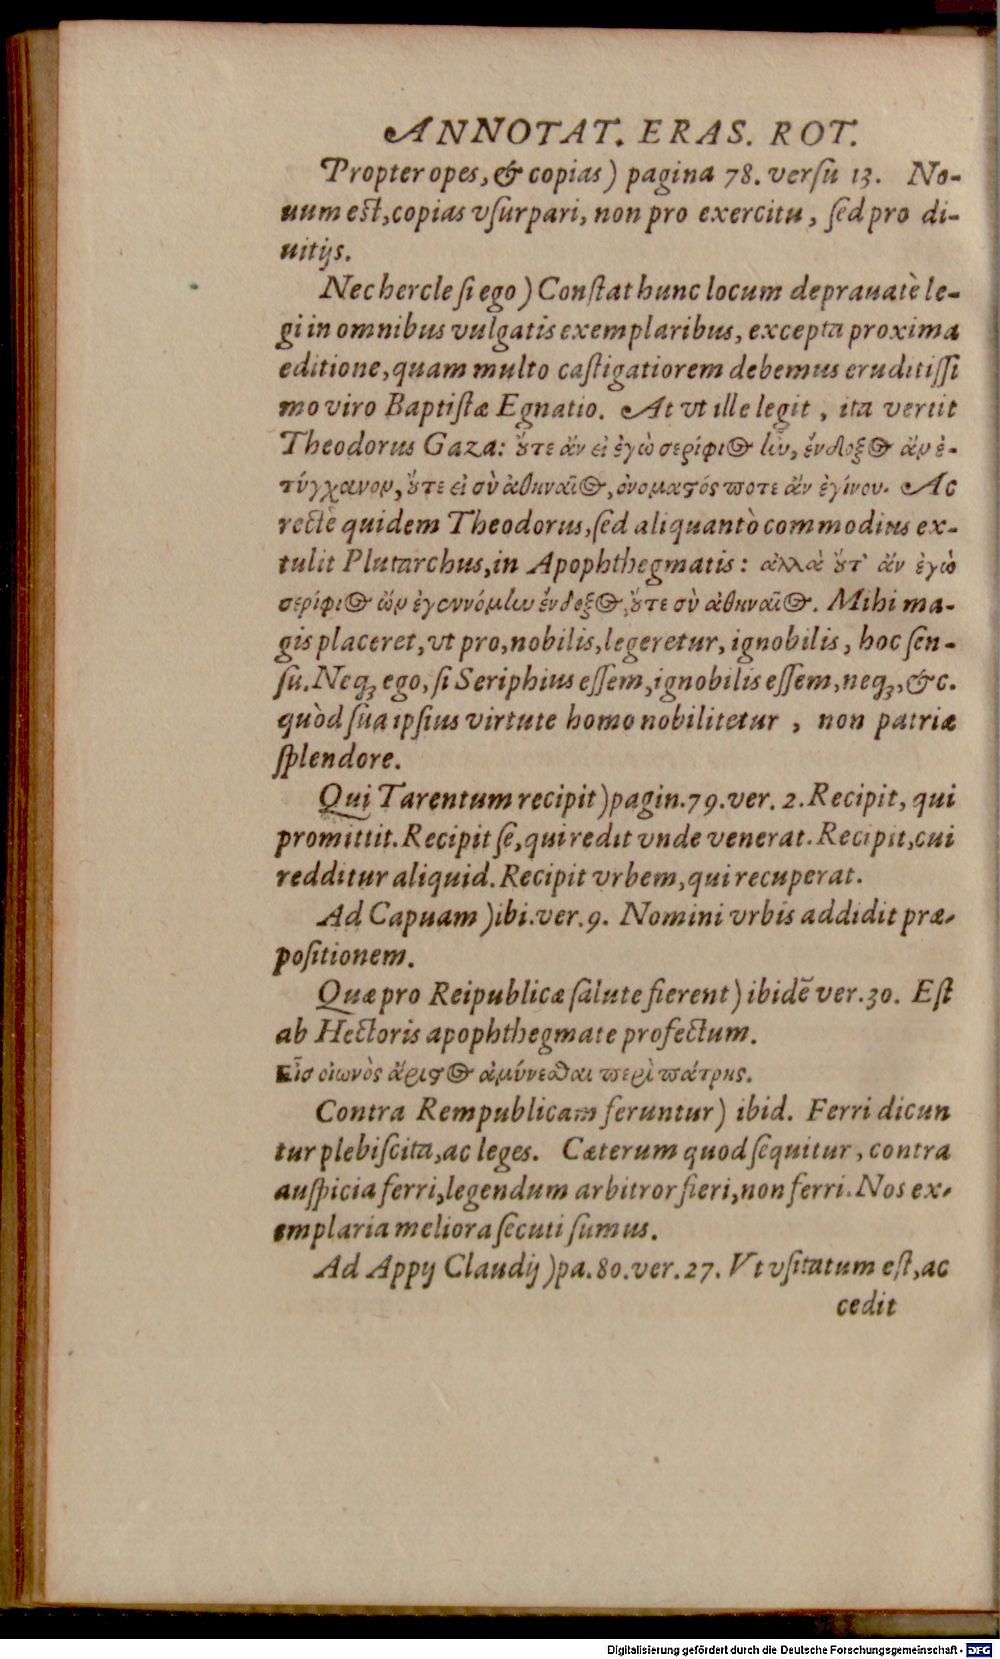 ANNOTAT. ERAS. ROT.
Propter opes, & copias) pagina 78. versu 13. No-
uum est, copias vsurpari, non pro exercitu, sed pro di-
uitijs.
Nec hercle si ego) Constat hunc locum deprauatè le-
gi in omnibus vulgatis exemplaribus, excepta proxima
editione, quam multo castigatiorem debemus eruditissi
mo viro Baptistæ Egnatio. At vt ille legit, ita vertit
Theodorus Gaza: ὔτε ἂν εἰ ἐγὼ σερίφι(Θ) ἦν, ἔνδοξ(Θ) ἂν ἐ-
τύγχανον, ὔτε εἰ σὺ ἀθηναῖ(Θ), ὀνομαστός ποτε ἂν ἐγίνου. Ac
rectè quidem Theodorus, sed aliquantò commodius ex-
tulit Plutarchus, in Apophthegmatis: ἀλλὰ ὔτ' ἂν ἐγὼ
σερίφι(Θ) ὢν ἐγεννόμην ἔνδοξ(Θ), ὔτε σὺ ἀθηναῖ(Θ). Mihi ma-
gis placeret, vt pro, nobilis, legeretur, ignobilis, hoc sen-
su. Neq; ego, si Seriphius essem, ignobilis essem, neq;, &c.
quòd sua ipsius virtute homo nobilitetur, non patriæ
splendore.
Qui Tarentum recipit) pagin. 79. ver. 2. Recipit, qui
promittit. Recipit se, qui redit vnde venerat. Recipit, cui
redditur aliquid. Recipit vrbem, qui recuperat.
Ad Capuam) ibi. ver. 9. Nomini vrbis addidit præ-
positionem.
Quæ pro Reipublicæ salute fierent) ibidē ver. 30. Est
ab Hectoris apophthegmate profectum.
Εἷσ οἰωνὸς ἄριστ(Θ) ἀμύνεσθαι περὶ πάτρης.
Contra Rempublicam feruntur) ibid. Ferri dicun
tur plebiscita, ac leges. Cæterum quod sequitur, contra
auspicia ferri, legendum arbitror fieri, non ferri. Nos ex-
emplaria meliora secuti sumus.
Ad Appij Claudij) pa. 80. ver. 27. Vt vsitatum est, ac
cedit
Digitalisierung gefördert durch die Deutsche Forschungsgemeinschaft - DFG